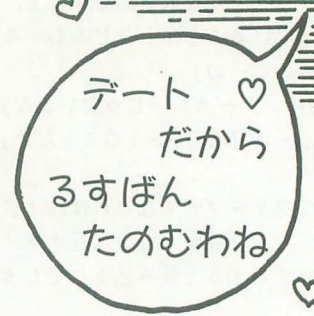 デート♡
だから
るすばん
たのむわね